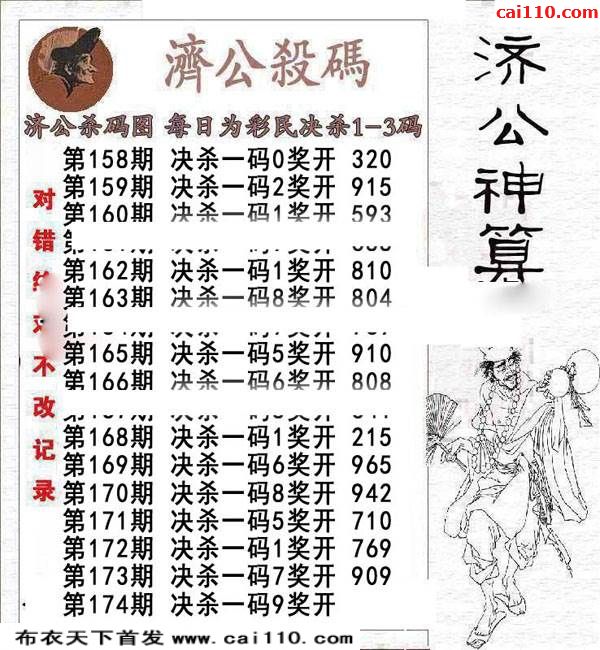 cai110.com
濟公殺碼
济公神算
济公杀码图 每日为彩民决杀1-3码
对错 不改记录
第158期 决杀一码0奖开 320
第159期 决杀一码2奖开 915
第160期 决杀一码1奖开 593
第162期 决杀一码1奖开 810
第163期 决杀一码8奖开 804
第165期 决杀一码5奖开 910
第166期 决杀一码6奖开 808
第168期 决杀一码1奖开 215
第169期 决杀一码6奖开 965
第170期 决杀一码8奖开 942
第171期 决杀一码5奖开 710
第172期 决杀一码1奖开 769
第173期 决杀一码7奖开 909
第174期 决杀一码9奖开
布衣天下首发 www.cai110.com